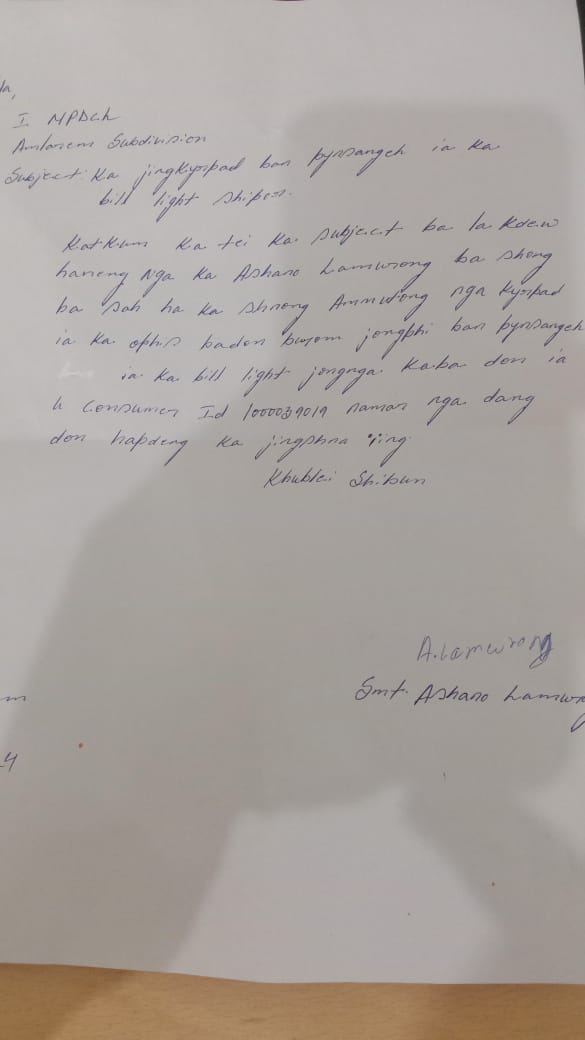 To,
I MPDCL
Amlarem Subdivision
Subject: Ka jingkyrpad ban pynsangeh ia ka
bill light shipor.
Katkum ka tei ka subject ba la kdew
haneng nga ka Ashano Lamwrong ba shong
ba sah ha ka shnong Ammutong nga kyrpad
ia ka ophis badon burom jongphi ban pynsangeh
ia ka bill light jongnga kaba don ia
u Consumer Id 1000039019 namar nga dang
don hapdeng ka jingshna ïing.
Khublei Shibun
A.Lamwrong
Smt. Ashano Lamwro